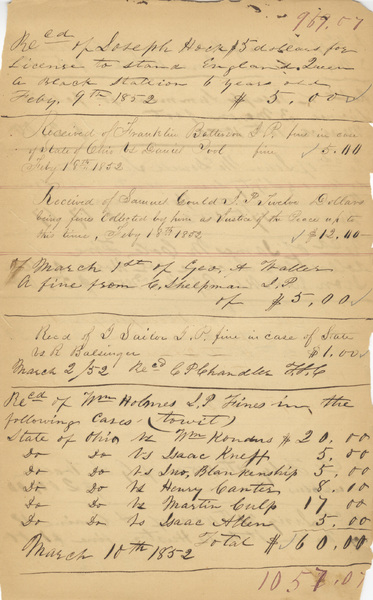 967.07
Recd of Joseph Hock $5 dollars for
License to stand England's Queen
a Black Stallion 6 years old
Feby 9th 1852 $5.00
Received of Franklin Batterson J.P. fine in case
of State of Ohio vs Daniel Pool fine $5.00
Feby 18th 1852
Received of Samuel Gould J.P. Twelve Dollars
being fines Collected by him as Justice of the Peace up to
this time, Feby 18th 1852 $12.00
March 1st of Geo. A Waller
A fine from C. Shelpman J.P
of $5.00
Recd of J Sailor J.P. fine in case of State
vs R Balsinger $1.00
March 2/52 Recd C P Chandler
Recd of Wm Holmes J.P Fines in the
following Cases (towit)
State of Ohio Vs Wm Konders $20.00
Do Do Vs Isaac Kneff 5.00
Do Do Vs Jno. Blankenship 5.00
Do Do Vs Henry Canter 8.00
Do Do Vs Martin Culp 17 00
Do Do Vs Isaac Allen 5.00
Total $60.00
March 10th 1852
1057.07